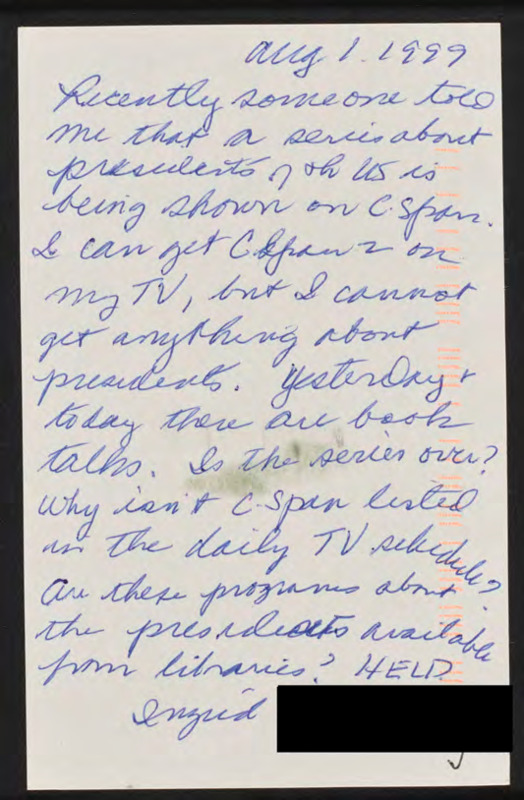 Aug 1. 1999
Recently someone told
me that a series about
presidents of th US is
being shown on C-Span.
I can get C-Span 2 on
my TV, but I cannot
get anything about
presidents. Yesterday +
today there are book
talks. Is the series over?
Why isn't C-Span listed
in the daily TV schedule?
Are these programs about
the presidents available
from libraries? HELP.
Ingrid